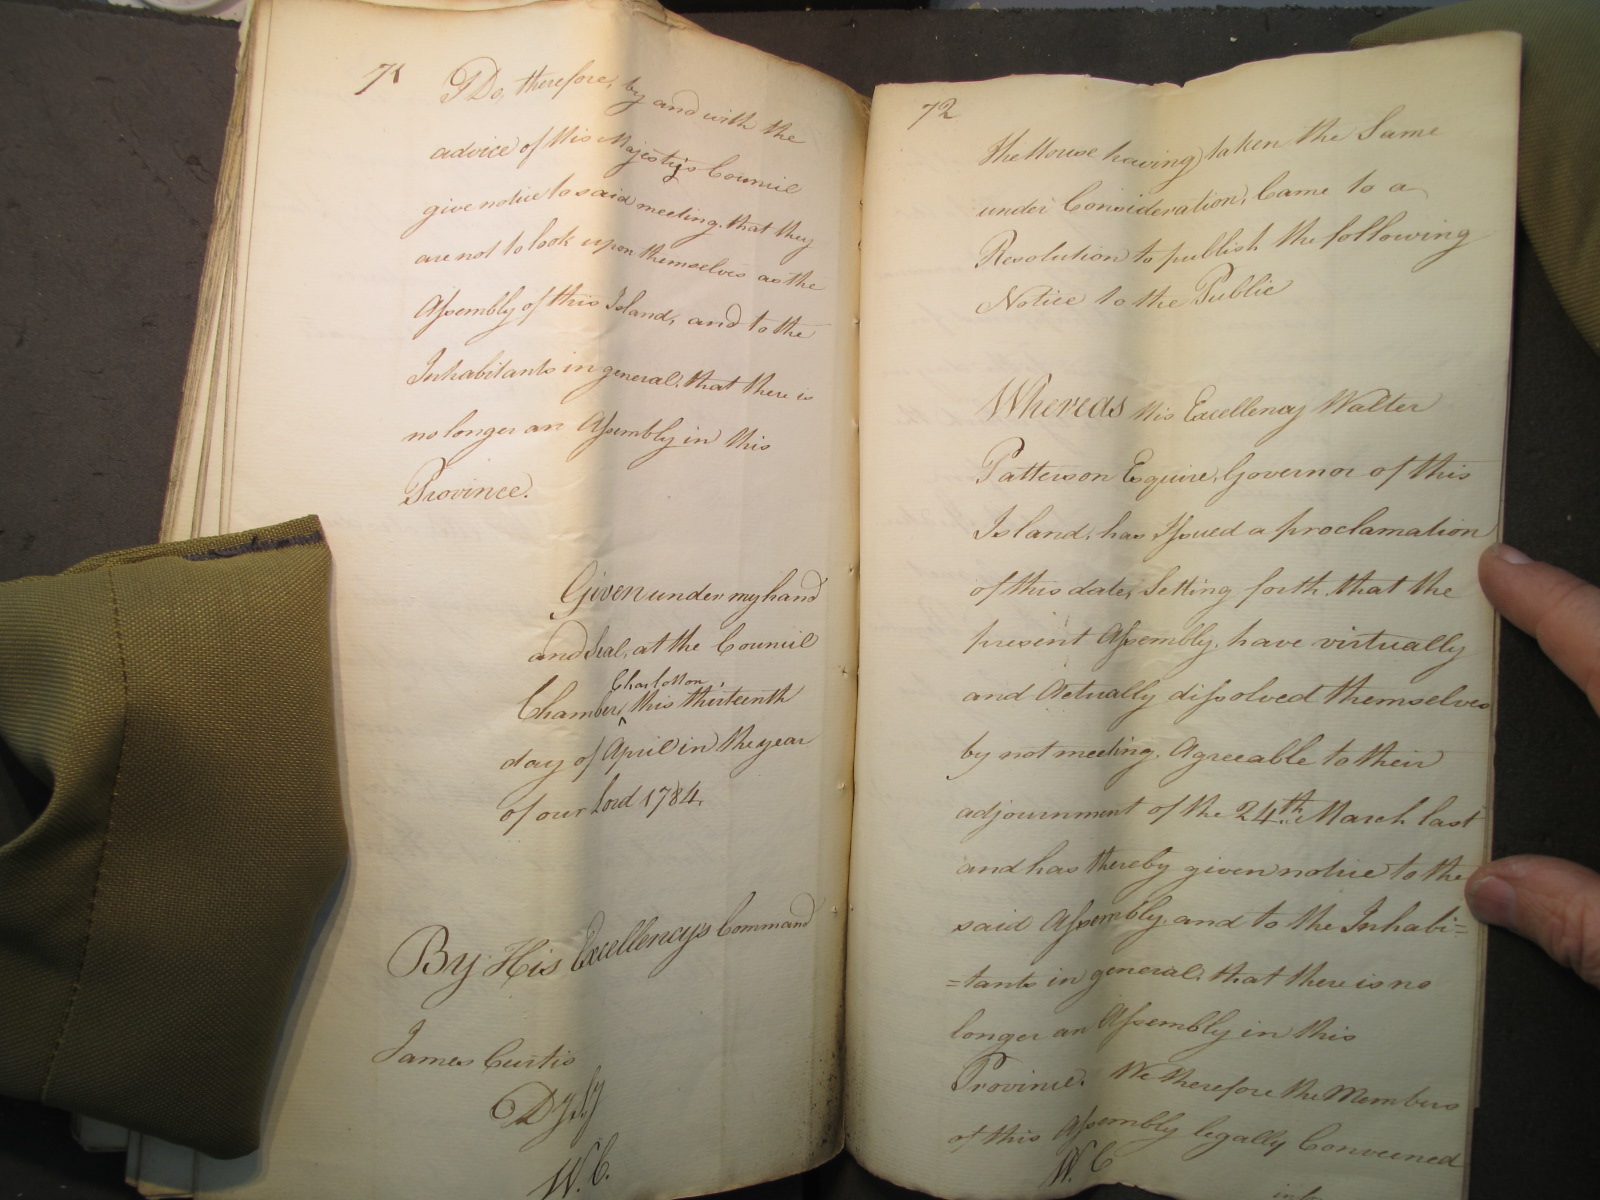 71
I Do, therefore, by and with the
advice of His Majesty's Council
give notice to said meeting, that they
are not to look upon themselves as the
Assembly of this Island, and to the
Inhabitants in general, that there is
no longer an Assembly in this
Province.
Given under my hand
and Seal, at the Council
Charlotton,
Chamber, ^ this thirteenth
day of April in the year
of our Lord 1784.
By His Excellencys Command
James Curtis
D. Sy
W. C.
72
The House having taken the Same
under Consideration, Came to a
Resolution to publish the following
Notice to the Public
Whereas His Excellency Walter
Patterson Esquire, Governor of this
Island, has Issued a proclamation
of this date, Setting forth that the
present Assembly, have virtually
and Actually dissolved themselves
by not meeting, Agreeable to their
adjournment of the 24th March last
and has thereby given notice to the
said Assembly, and to the Inhabi=
=tants in general, that there is no
longer an Assembly in this
Province. We therefore the Members
of this Assembly legally Conveened
W. C